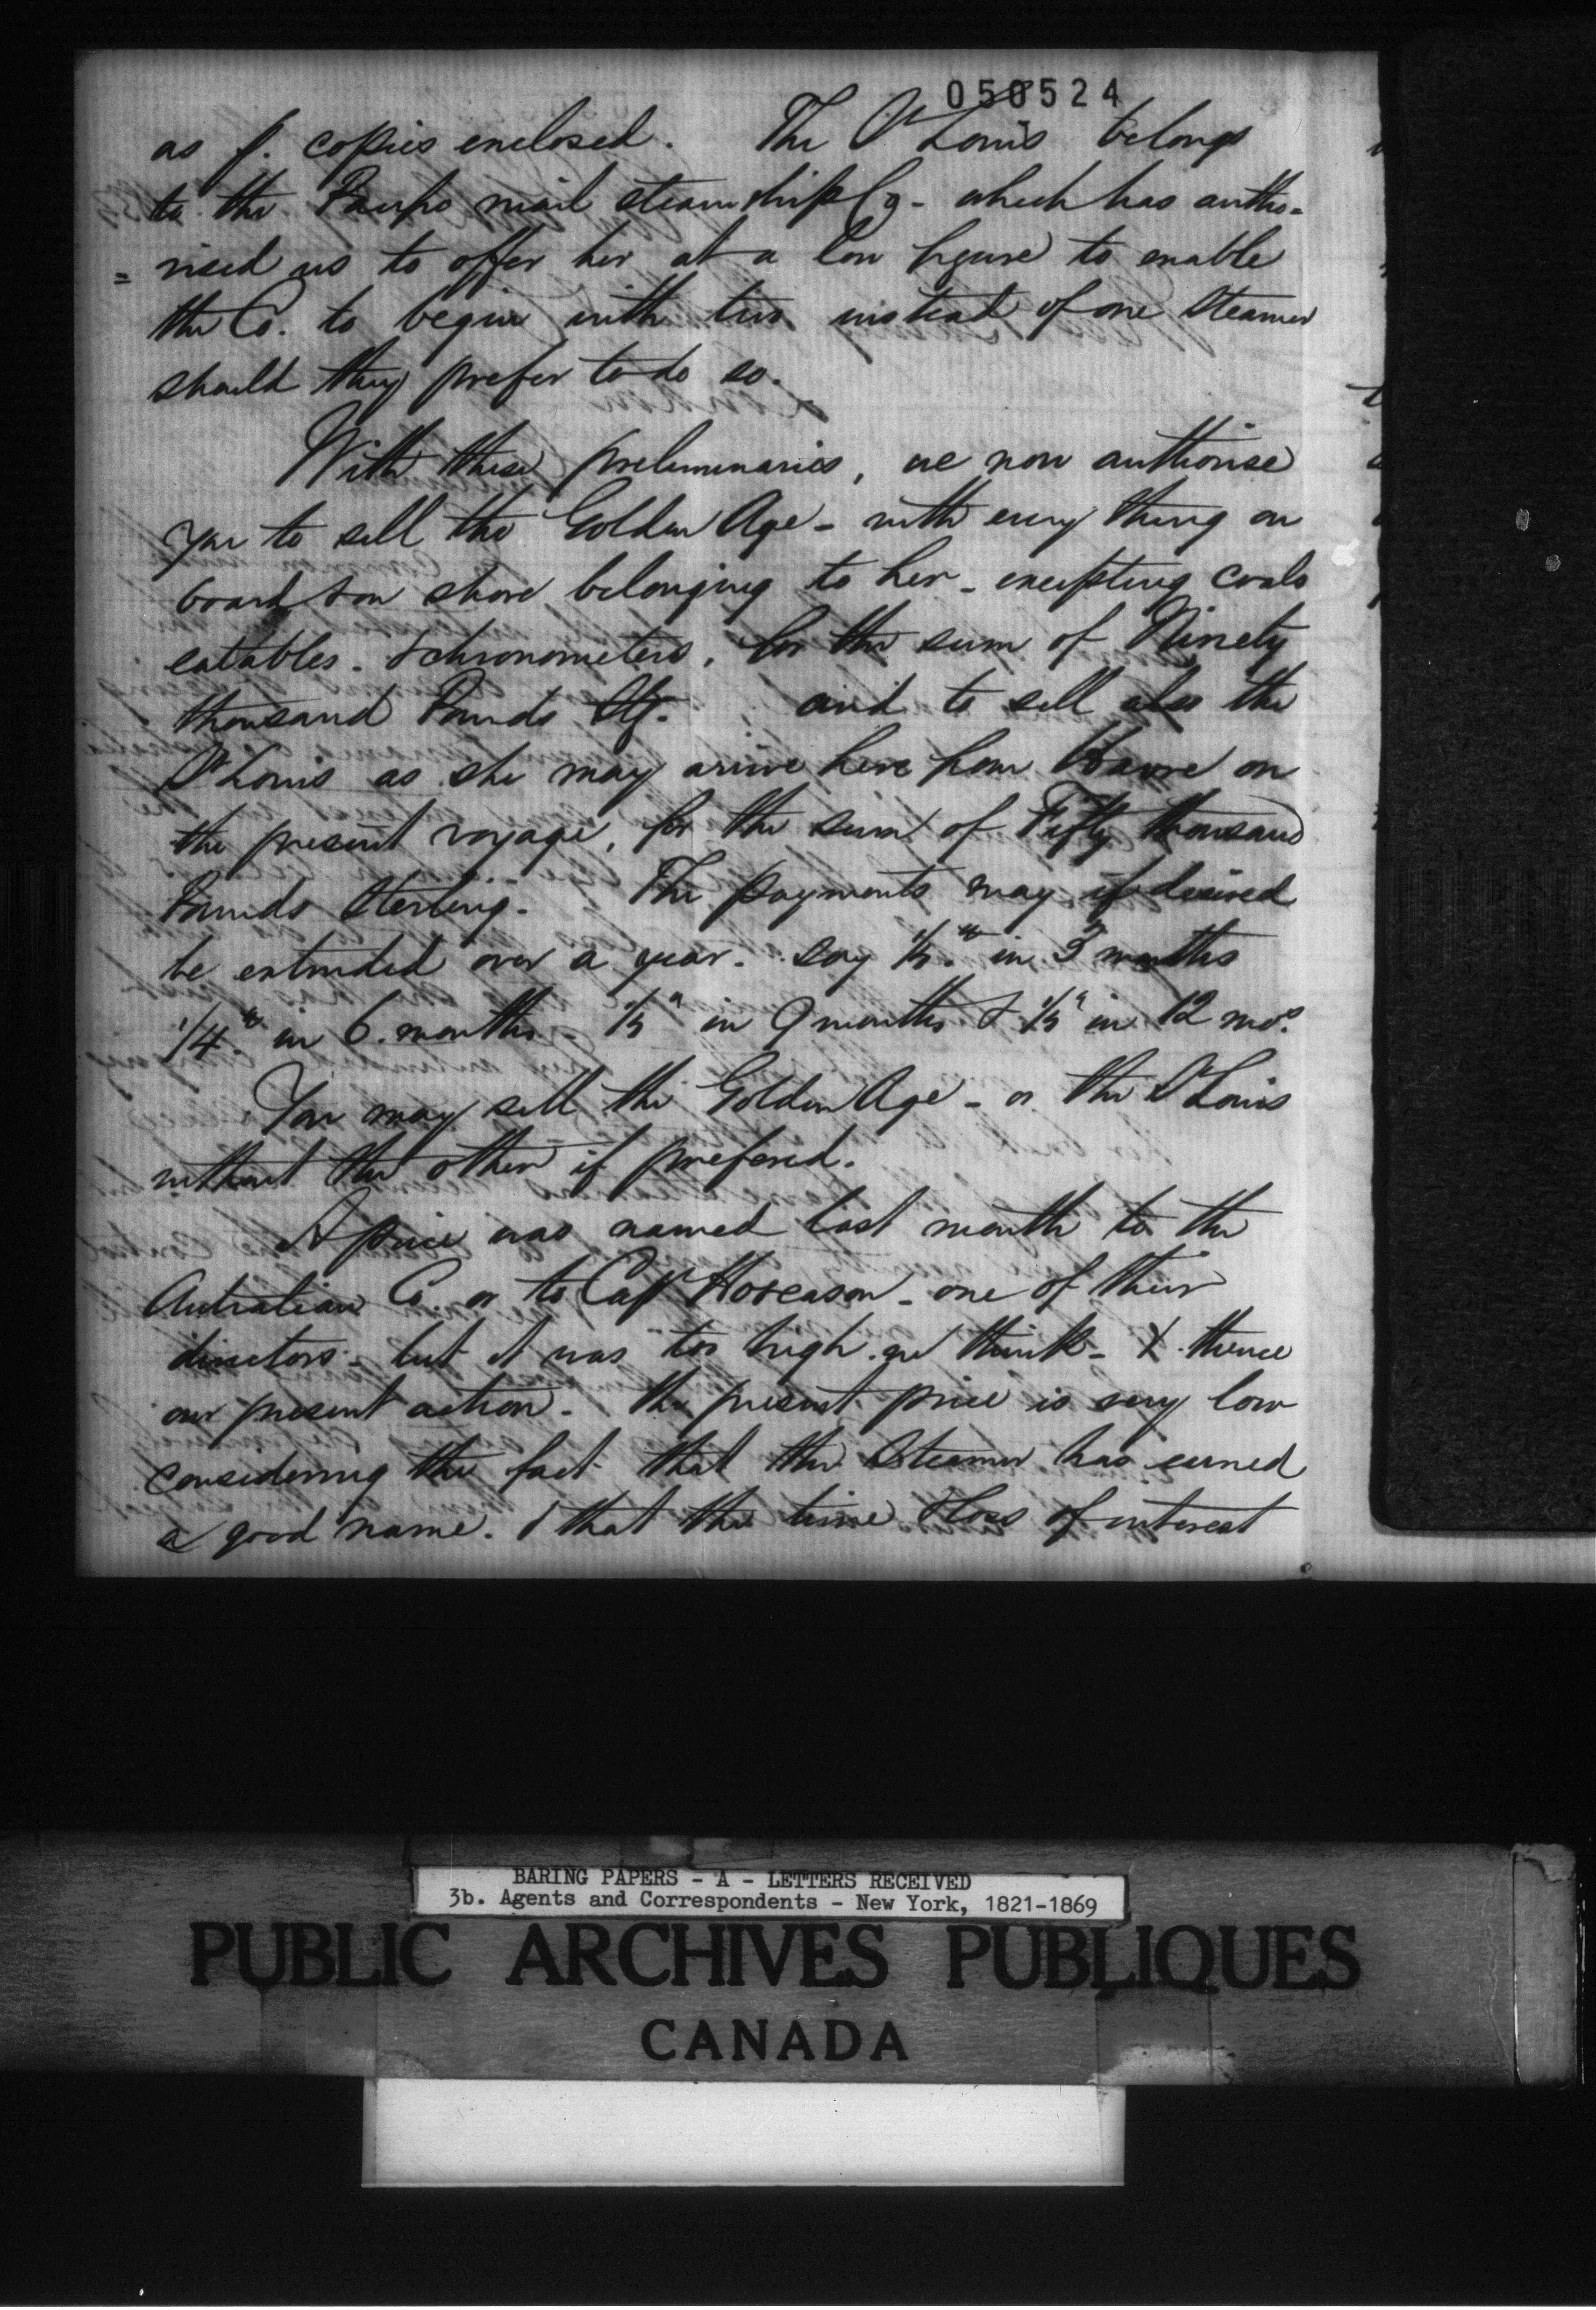 050524
as p. copies enclosed. The St Louis belongs
to the Pacific mail steam ship Co - which has autho-
= rised us to offer her at a low figure to enable
the Co. to begin with two instead of one Steamer
should they prefer to do so.
With these preliminaries, we now authorise
you to sell the Golden Age - with every thing on
board & on shore belonging to her - excepting coals
eatables - & chronometers, for the sum of Ninety
thousand Pounds Stg. and to sell also the
St Louis as she may arrive here from Havre on
the present voyage, for the sum of Fifty thousand
Pounds Sterling. The payments may if desired
be extended over a year. say in 3 months
1/4th in 6. months - in 9 months & in 12 mos.
You may sell the Golden Age - or the St Louis
without the other if prefered.
A price was named last month to the
Australian Co. or to Capt Hoseason - one of their
directors - but it was too high we think - & thence
our present action. The present price is very low
considering the fact that the Steamer has earned
a good name. & that the time & loss of interest
BARING PAPERS - A - LETTERS RECEIVED
3b. Agents and Correspondents - New York, 1821-1869
PUBLIC ARCHIVES PUBLIQUES
CANADA